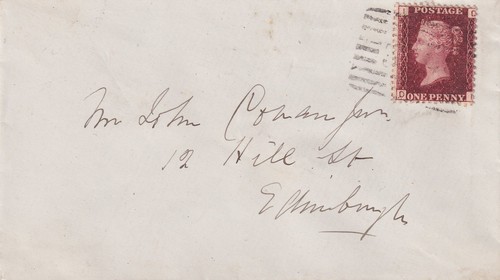 I D
POSTAGE
ONE PENNY
D I
Mr John Cowan Jun.
12 Hill St
Edinburgh